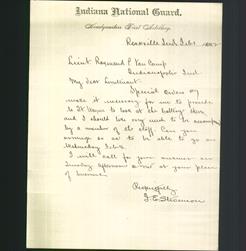 Indiana National Guard.
Headquarters First Artillery.
Rossville Ind. Feb. 1 1882
Lieut. Raymond P. Van Camp
Indianapolis Ind
My dear Lieutenant
Special Orders
make it necessary for me to proceed
to Ft. Wayne to look at the battery there
and I should like very much to be accompanied
by a member of the staff. Can you
arrange so as to be able to go on
Wednesday Feb
I will call for your answer on
Sunday afternoon at your place
of business
Respectfully
J. E. Stevenson